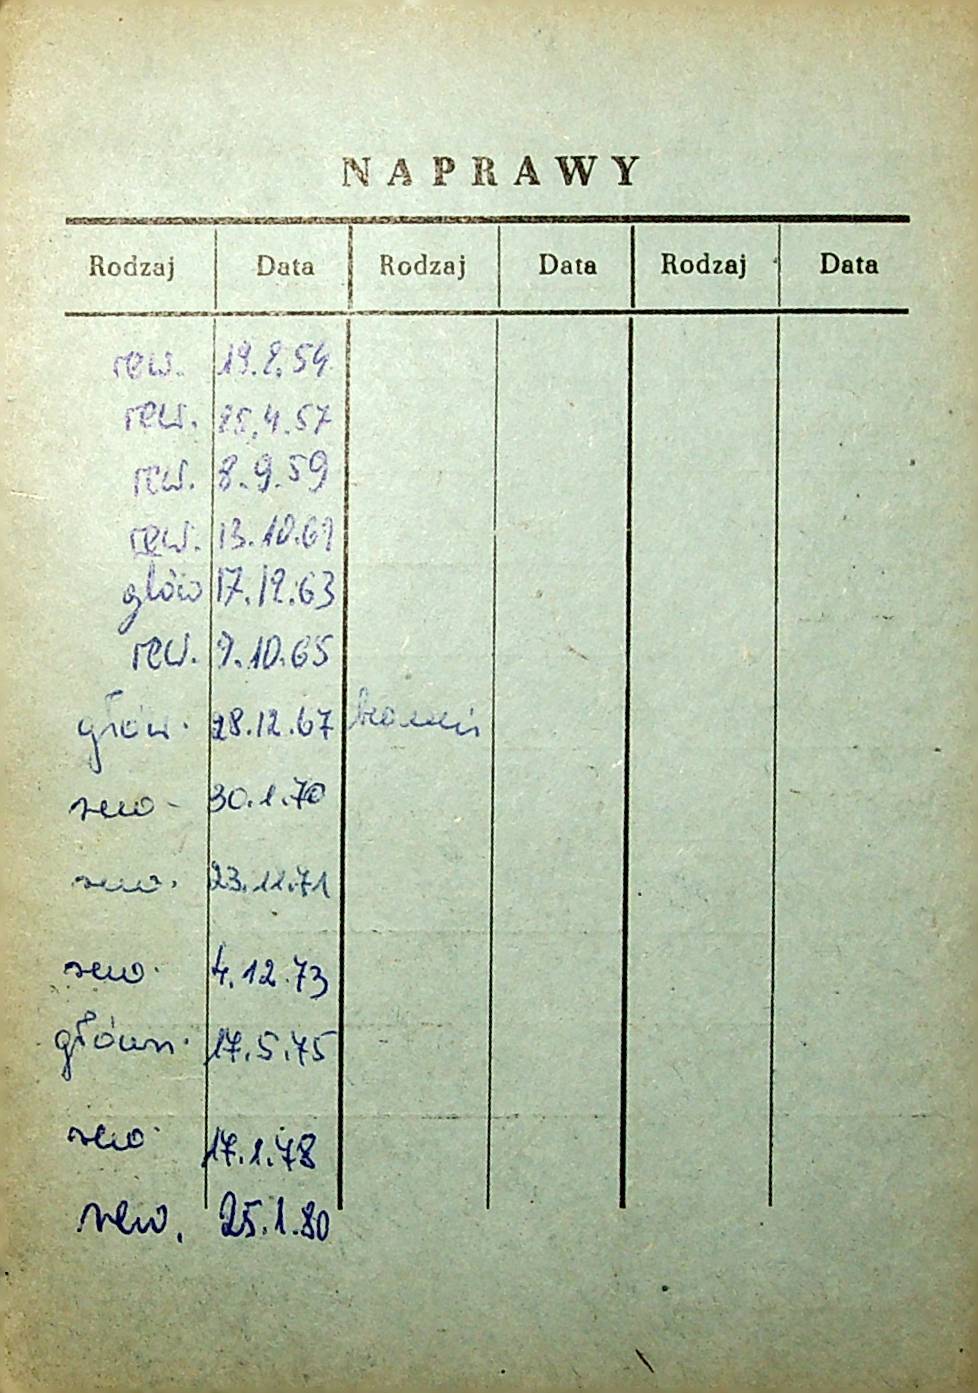 NAPRAWY
Rodzaj Data Rodzaj Data Rodzaj Data
rew. 19.2.54
rew. 25.4.57
rew. 8.9.59
rew. 13.10.61
głów 17.12.63
rew. 9.10.65
głów. 28.12.67
rew- 30.1.70
rew. 23.11.71
rew. 4.12.73
główn. 17.5.75
rew. 17.1.78
rew. 25.1.80